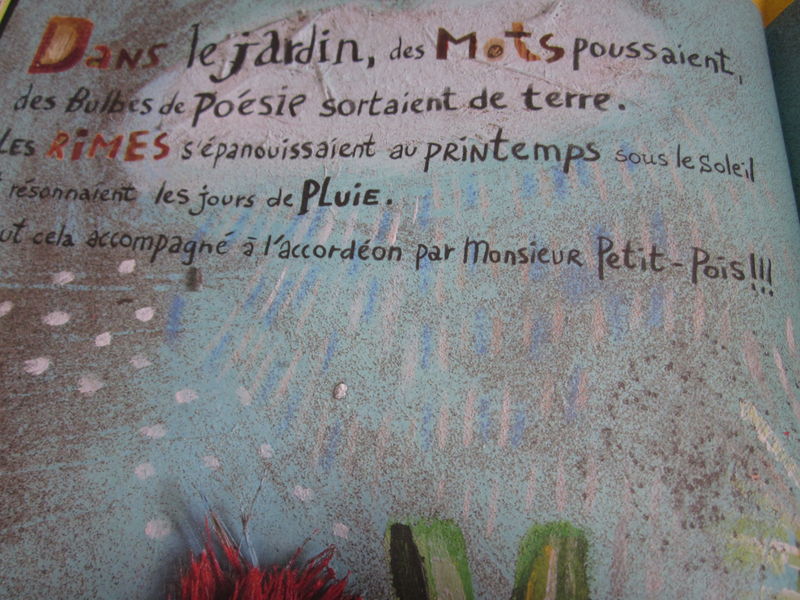 Dans le jardin, des Mots poussaient,
des Bulbes de Poésie sortaient de terre.
Les RIMES s'épanouissaient au PRINtemps sous le Soleil
résonnaient les jours de PLUIE.
cela accompagné à l'accordéon par Monsieur Petit-Pois!!!